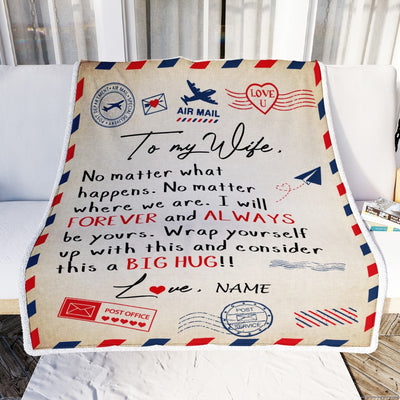 LOVE
U
AIR MAIL
To my Wife,
No matter what
happens. No matter
where we are. I will
FOREVER and ALWAYS
be yours. Wrap yourself
up with this and consider
this a BIG HUG!!
Love, NAME
POST OFFICE
POST
SERVICE